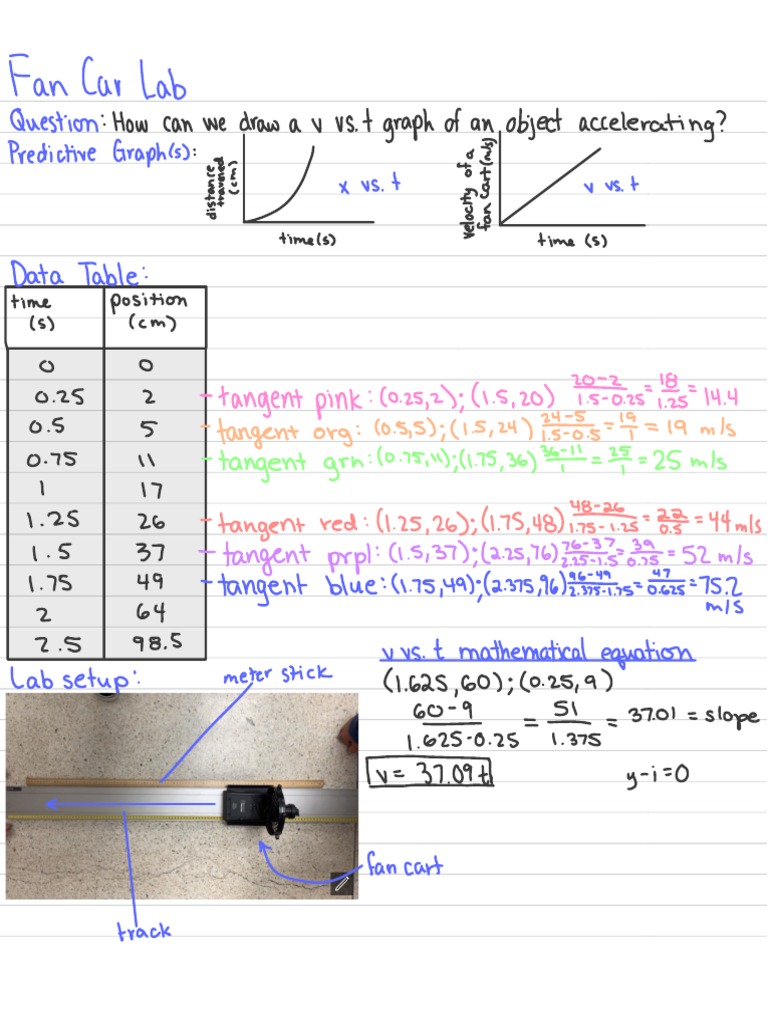 Fan Car Lab
Question: How can we draw a v vs. t graph of an object accelerating?
Predictive Graph(s):
distance traveled (cm)
x vs. t
time(s)
velocity of a fan cart (m/s)
v vs. t
time (s)
Data Table:
time (s) position (cm)
0 0
0.25 2 - tangent pink: (0.25,2); (1.5,20) 20-2/1.5-0.25 = 18/1.25 = 14.4
0.5 5 - tangent org: (0.5,5); (1.5,24) 24-5/1.5-0.5 = 19/1 = 19 m/s
0.75 11 - tangent grn: (0.75,11); (1.75,36) 36-11/1 = 25/1 = 25 m/s
1 17
1.25 26 - tangent red: (1.25,26); (1.75,48) 48-26/1.75-1.25 = 22/0.5 = 44 m/s
1.5 37 - tangent prpl: (1.5,37); (2.25,76) 76-37/2.25-1.5 = 39/0.75 = 52 m/s
1.75 49 - tangent blue: (1.75,49); (2.375,96) 96-49/2.375-1.75 = 47/0.625 = 75.2 m/s
2 64
2.5 98.5
v vs. t mathematical equation
(1.625,60); (0.25,9)
60-9/1.625-0.25 = 51/1.375 = 37.01 = slope
v = 37.09t
y-i=0
Lab setup:
meter stick
fan cart
track